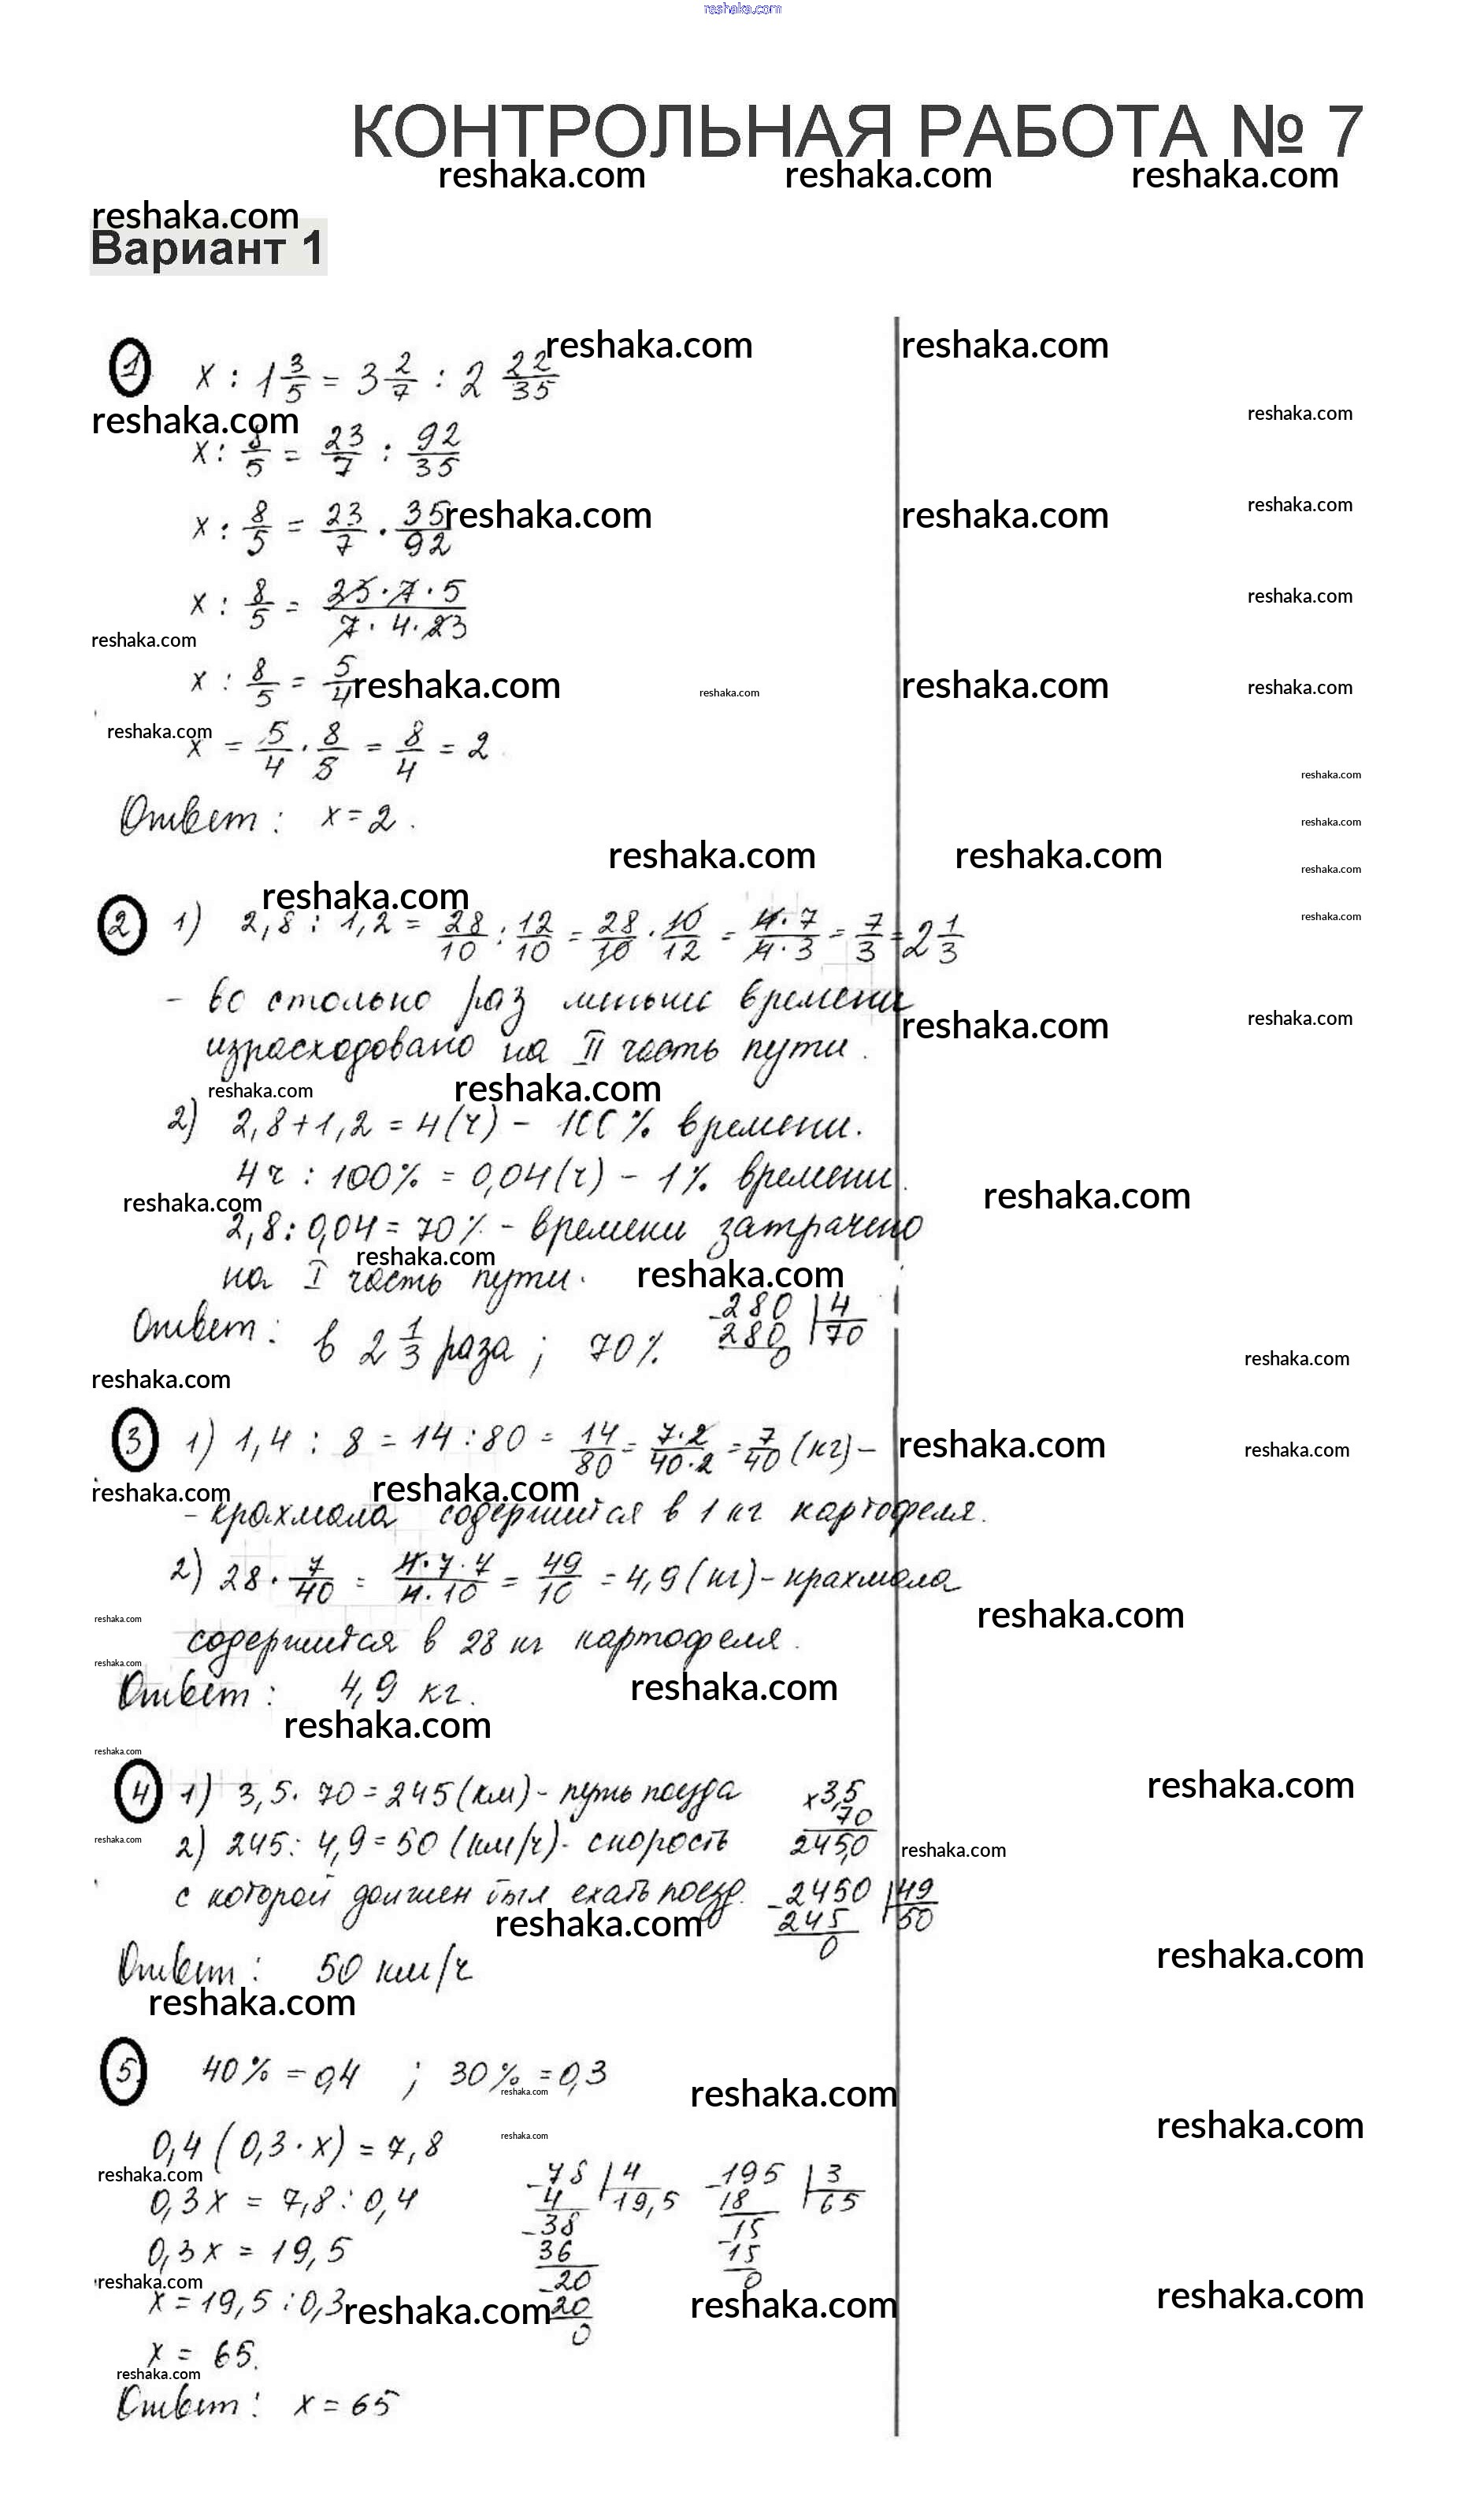 reshaka.com
КОНТРОЛЬНАЯ РАБОТА № 7
reshaka.com reshaka.com reshaka.com
reshaka.com
Вариант 1
reshaka.com reshaka.com
1 x : 1 3/5 = 3 2/7 : 2 22/35
reshaka.com reshaka.com
x : 8/5 = 23/7 : 92/35
x : 8/5 = 23/7 · 35/92
reshaka.com reshaka.com reshaka.com
x : 8/5 = 23·7·5 / 7·4·23
reshaka.com
reshaka.com
x : 8/5 = 5/4
reshaka.com reshaka.com reshaka.com reshaka.com
reshaka.com
x = 5/4 · 8/5 = 8/4 = 2
reshaka.com
Ответ: x = 2.
reshaka.com
reshaka.com reshaka.com reshaka.com
reshaka.com reshaka.com
2 1) 2,8 : 1,2 = 28/10 : 12/10 = 28/10 · 10/12 = 4·7/4·3 = 7/3 = 2 1/3
- во столько раз меньше времени
reshaka.com reshaka.com
израсходовано на II часть пути.
reshaka.com reshaka.com
2) 2,8 + 1,2 = 4 (ч) - 100% времени.
4ч : 100% = 0,04 (ч) - 1% времени.
reshaka.com reshaka.com
2,8 : 0,04 = 70% - времени затрачено
reshaka.com
на I часть пути.
reshaka.com
-280 | 4
280 70
0
Ответ: в 2 1/3 раза ; 70%
reshaka.com reshaka.com
3 1) 1,4 : 8 = 14 : 80 = 14/80 = 7·2/40·2 = 7/40 (кг) -
reshaka.com reshaka.com
reshaka.com reshaka.com
- крахмала содержится в 1 кг картофеля.
2) 28 · 7/40 = 4·7·7/4·10 = 49/10 = 4,9 (кг) - крахмала
reshaka.com reshaka.com
содержится в 28 кг картофеля.
reshaka.com
Ответ: 4,9 кг.
reshaka.com
reshaka.com
reshaka.com
reshaka.com
4 1) 3,5 · 70 = 245 (км) - путь поезда
x 3,5
70
245,0
reshaka.com reshaka.com
2) 245 : 4,9 = 50 (км/ч) - скорость
с которой должен был ехать поезд.
-2450 | 49
245 50
0
reshaka.com
reshaka.com
Ответ: 50 км/ч
reshaka.com
reshaka.com
5 40% = 0,4 ; 30% = 0,3
reshaka.com reshaka.com
reshaka.com reshaka.com
0,4 (0,3 · x) = 7,8
reshaka.com
0,3x = 7,8 : 0,4
-78 | 4
4 19,5
-38
36
-20
20
0
-195 | 3
18 65
-15
15
0
0,3x = 19,5
reshaka.com reshaka.com
x = 19,5 : 0,3
reshaka.com reshaka.com
x = 65.
reshaka.com
Ответ: x = 65